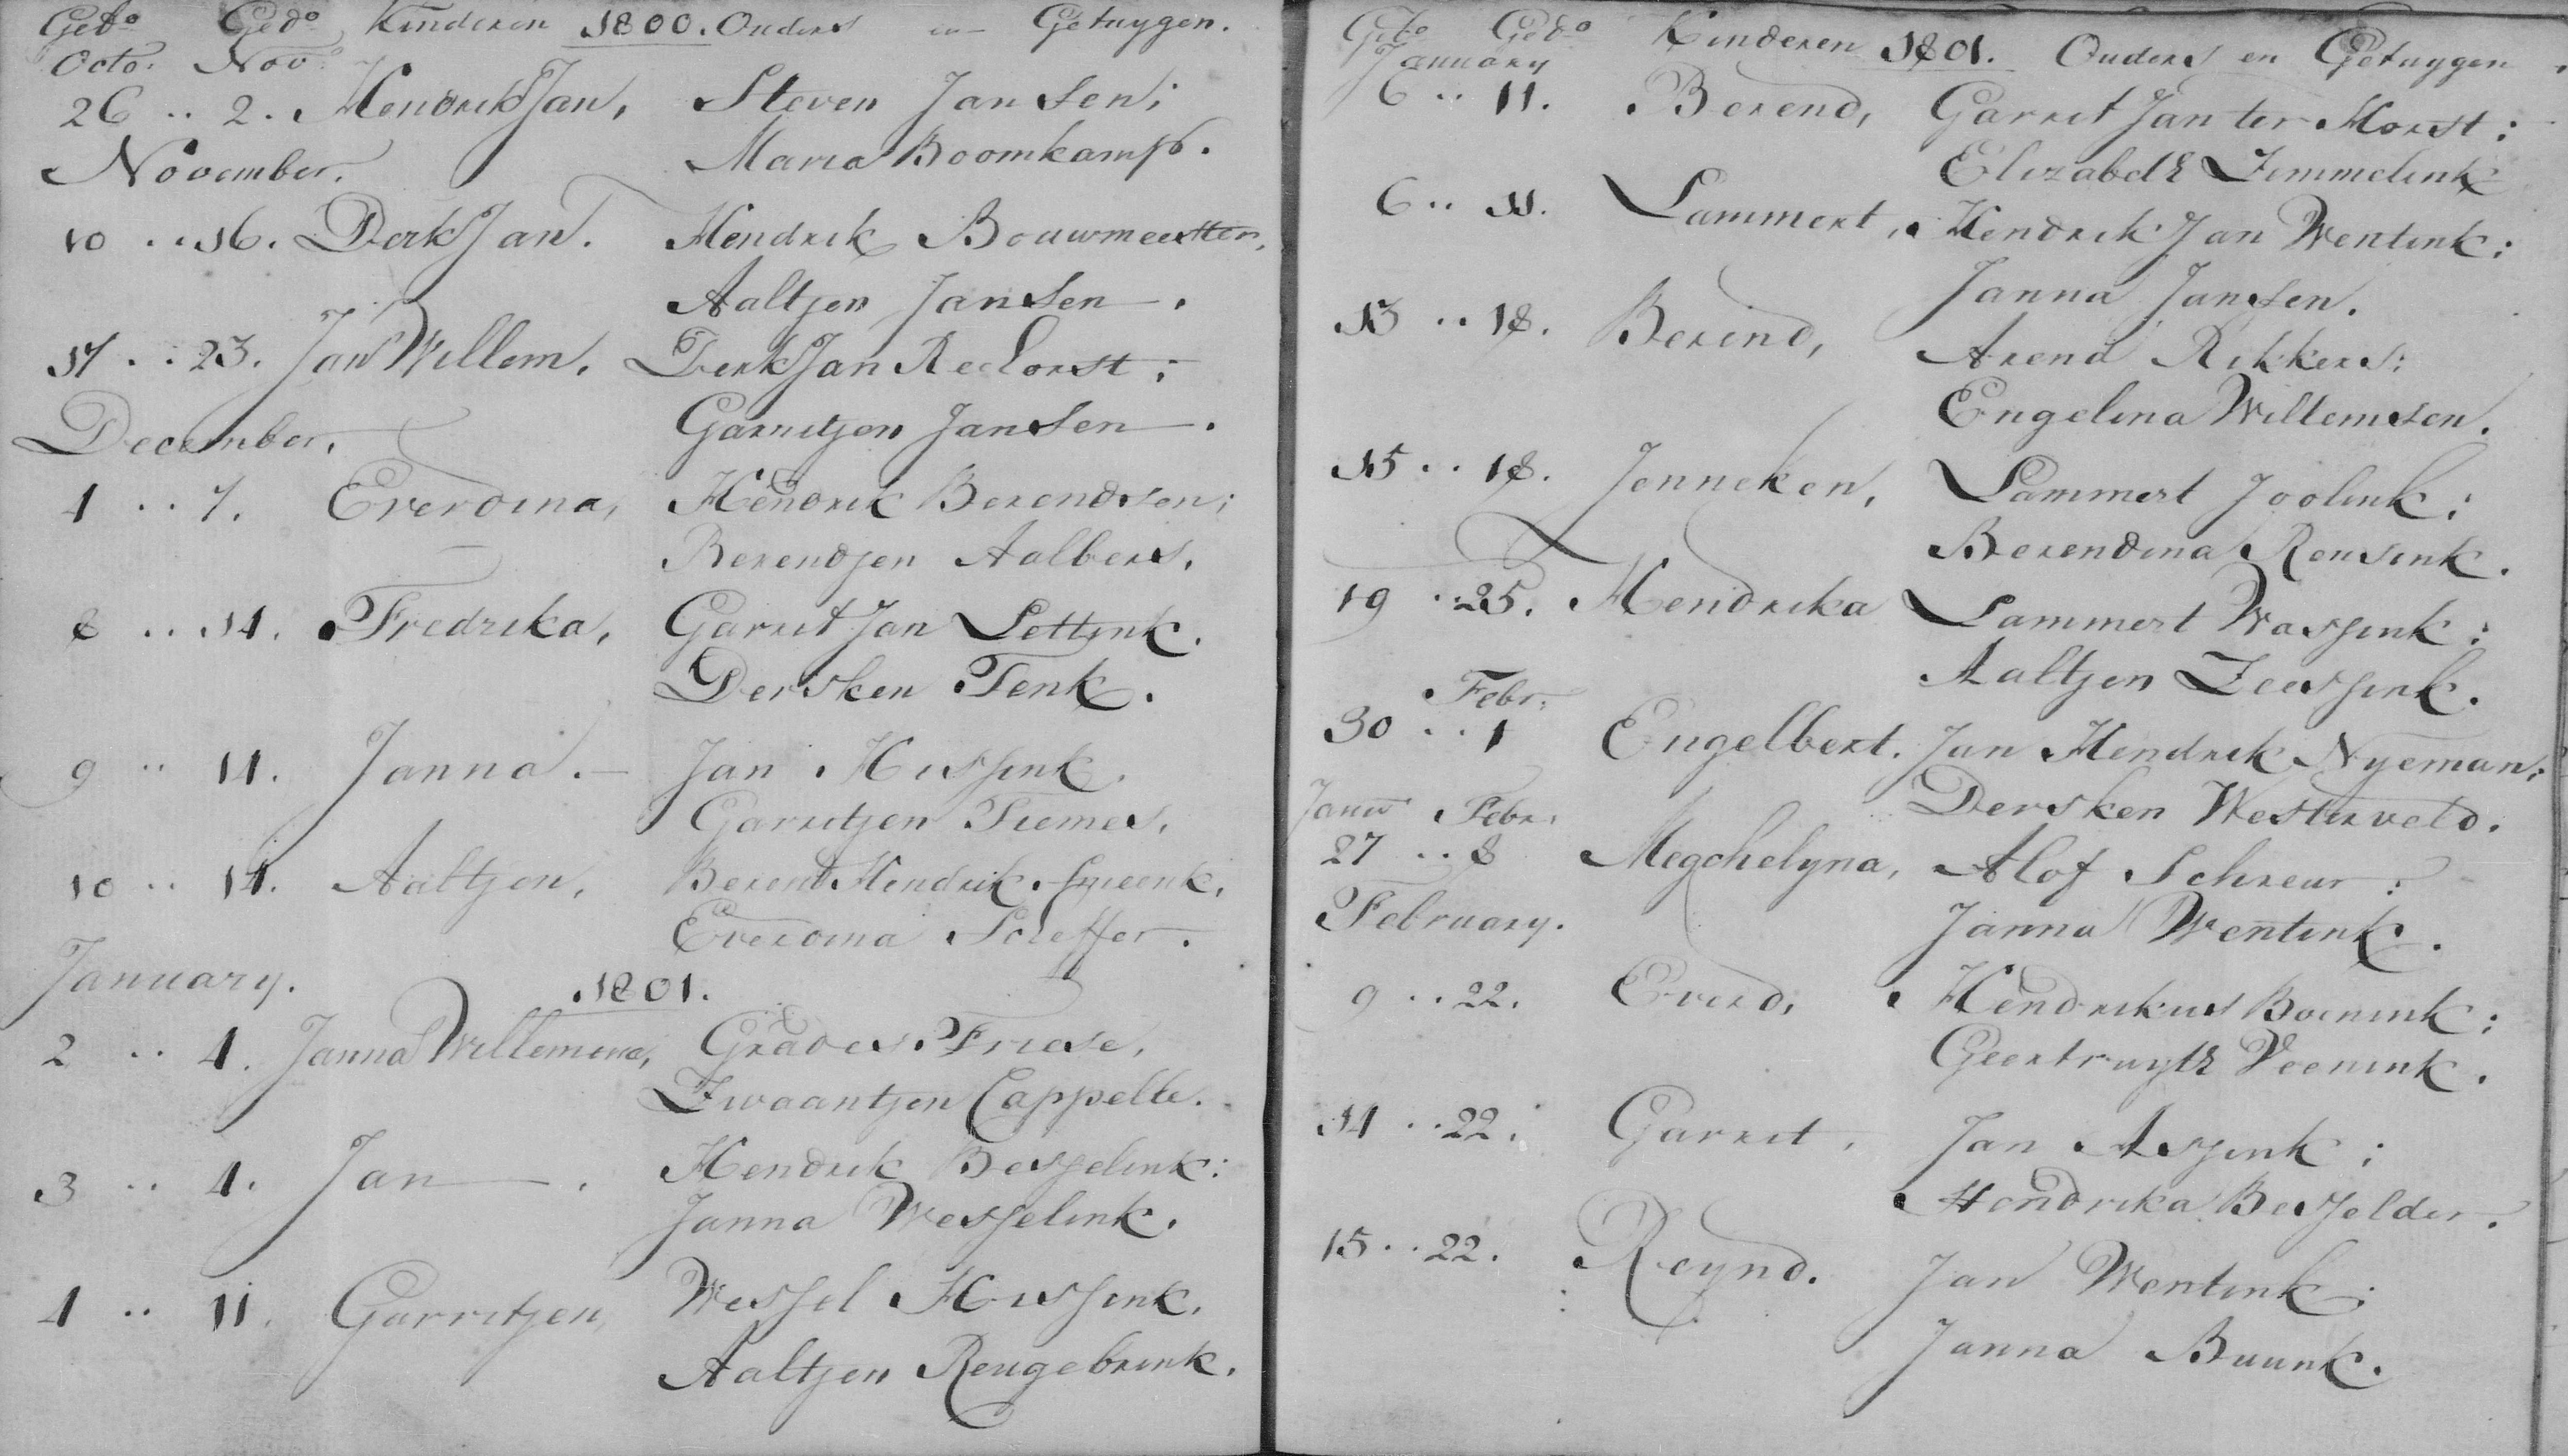 Geb.o Ged.o Kinderen 1800. Ouders en Getuygen.
Octo. Nov.
26 .. 2. Hendrik Jan, Steven Jansen;
Maria Boomkamp.
November.
10 .. 16. Derk Jan. Hendrik Bouwmeester,
Aaltjen Jansen.
17 .. 23. Jan Willem. Derk Jan Reehorst;
Garritjen Jansen.
December.
1 .. 7. Everdina, Hendrik Berendsen;
Berendjen Aalbers.
8 .. 14. Fredrika, Garrit Jan Lettink.
Dersken Tenk.
9 .. 14. Janna. Jan Hissink.
Garritjen Tiemes.
10 .. 14. Aaltjen, Berend Hendrik Smeenk,
Everdina Scheffer.
January. 1801.
2 .. 4. Janna Willemina, Grades Friese,
Zwaantjen Cappelle.
3 .. 4. Jan. Hendrik Besselink:
Janna Wesselink.
4 .. 11. Garritjen, Wessel Hissink.
Aaltjen Rengebrink.
Geb.o Ged.o Kinderen 1801. Ouders en Getuygen.
January
6 .. 11. Berend, Garrit Jan ter Horst;
Elizabeth Zimmelink
6 .. 11. Lammert, Hendrik Jan Wentink:
Janna Jansen.
13 .. 18. Berend, Arend Rikkers:
Engelina Willemsen.
15 .. 18. Jenneken, Lammert Joolink;
Berendina Rensink.
19 .. 25. Hendrika Lammert Wassink;
Aaltjen Zeessink.
Febr.
30 .. 1 Engelbert. Jan Hendrik Nyeman;
Dersken Westerveld.
Janu Febr.
27 .. 8 Megchelyna, Alof Schreur:
Janna Wentink.
February.
9 .. 22. Everd, Hendrikus Boenink;
Geertruyth Veenink.
14 .. 22. Garrit, Jan Assink;
Hendrika Besselder.
15 .. 22. Reynd. Jan Wentink;
Janna Buunk.